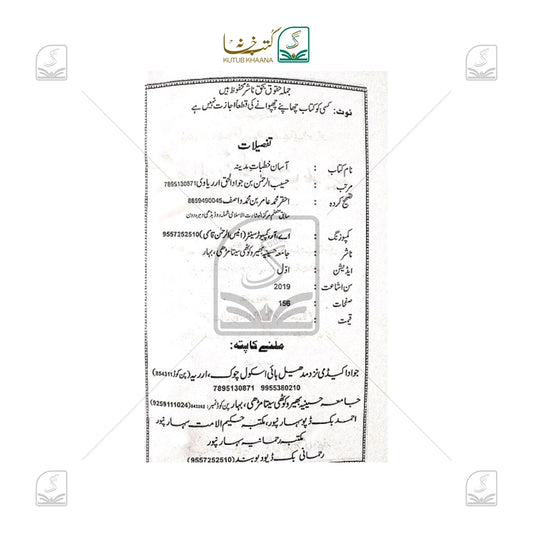 کتب خانہ
KUTUB KHAANA
جملہ حقوق بحق ناشر محفوظ ہیں
نوٹ: کسی کو کتاب چھاپنے چھپوانے کی قطعاً اجازت نہیں ہے
تفصیلات
نام کتاب : آسان خطبات مدینہ
مرتب : حبیب الرحمٰن بن جواد الحق ارریاوی 7895130871
تصحیح کردہ : احقر محمد عامر بن محمد واصف 8859490045
کمپوزنگ : اے، آر، کمپیوٹر سینٹر (انیس الرحمٰن قاسمی) 9557252510
ناشر : جامعہ حسینیہ بھیرو کوٹھی سیتامڑھی، بہار
ایڈیشن : اوّل
سن اشاعت : 2019
صفحات : 156
قیمت :
ملنے کا پتہ:
جواد اکیڈمی نزد مدھیل ہائی اسکول چوک، ارریہ (پن کوڈ 854311)
7895130871 9955380210
جامعہ حسینیہ بھیرو کوٹھی سیتامڑھی، بہار پن کوڈ نمبر: (9259111024)
احمد بک ڈپو سہارنپور، مکتبہ حکیم الامت سہارنپور
مکتبہ رحمانیہ سہارنپور
رحمانی بک ڈپو دیوبند (9557252510)